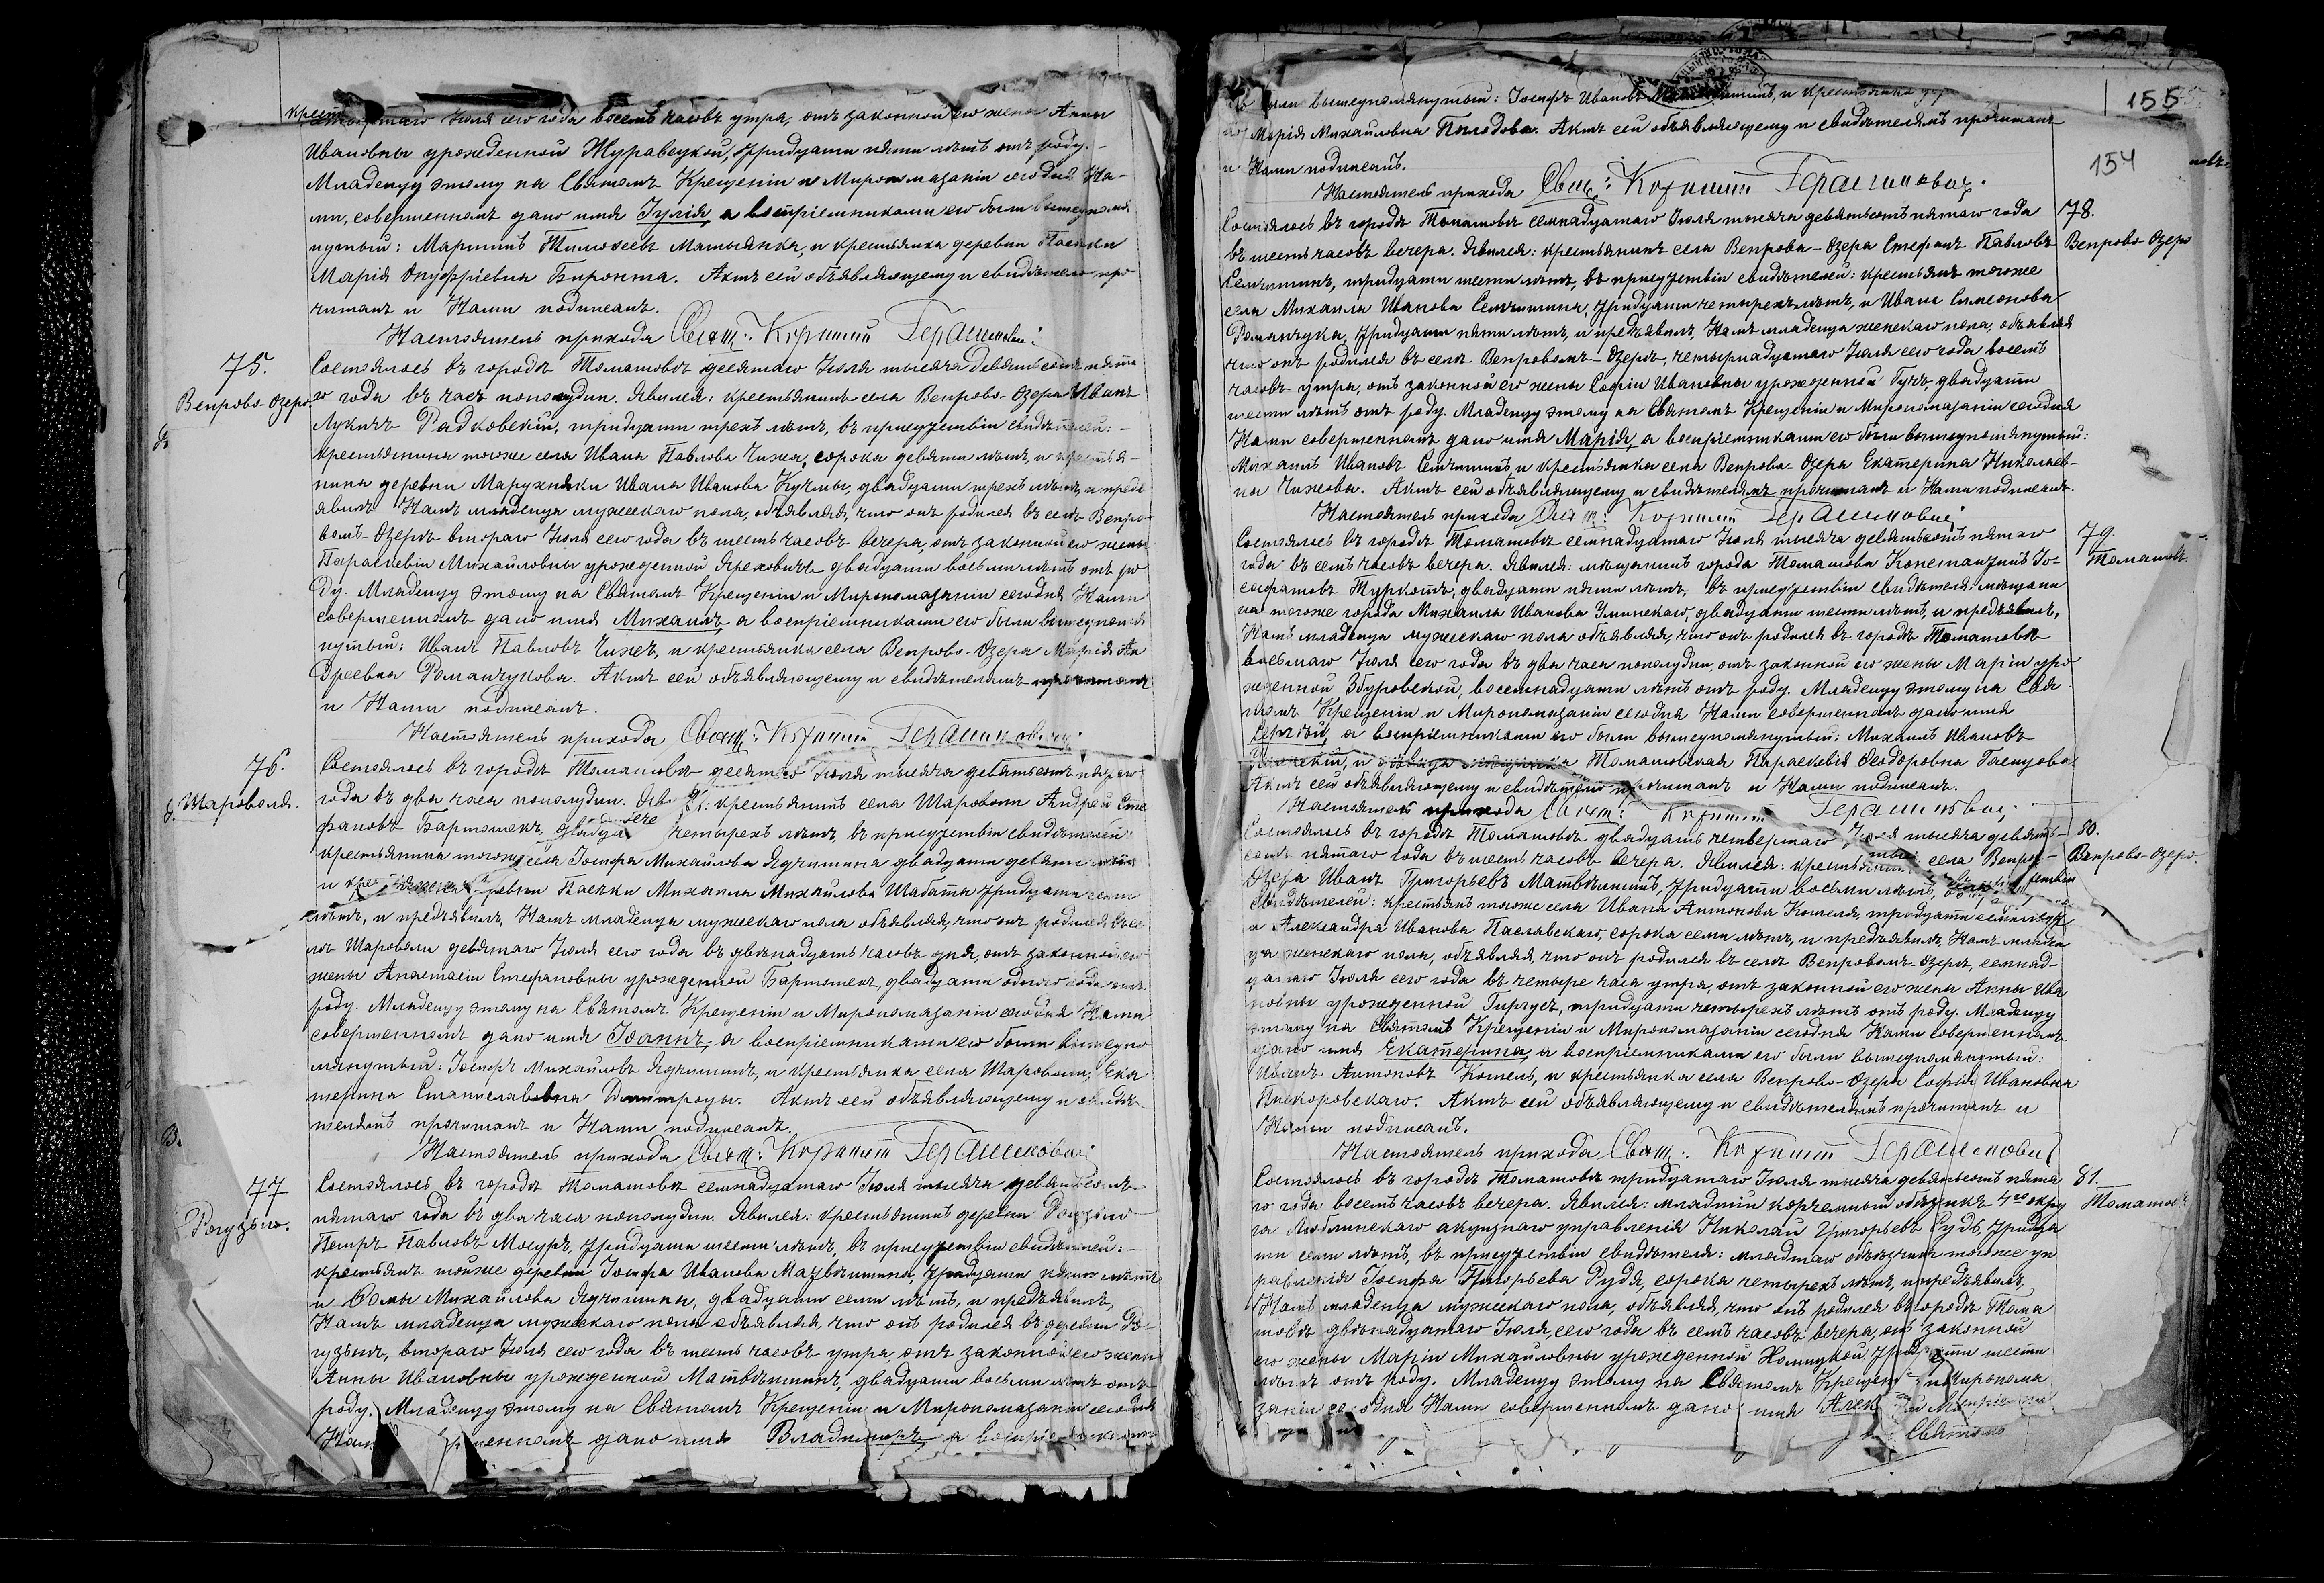 Іюля сего года восемь часовъ утра, отъ законной его жены Анны
Ивановны урожденной Журавецкой, тридцати пяти лѣтъ отъ роду.-
Младенцу этому на Святомъ Крещеніи и Миропомазаніи сегодня На-
ми, совершенномъ дано имя Іулія, а воспріемниками его были вышеупомя
нутый: Мартинъ Тимоѳеевъ Матыянка, и крестьянка деревни Пасѣки
Марія Онуфріевна Биронта. Актъ сей объявляющему и свидѣтелю про
читанъ и Нами подписанъ.
Настоятель прихода Свящ: Корнилій Герашиновичъ
75.
Вепрово-Озеро.
Состоялось въ городѣ Томашовѣ десятаго Іюля тысяча девятьсотъ пята
го года въ часъ пополудни. Явился: крестьянинъ села Вепрово-Озера Иванъ
Лукичъ Радковскій, тридцати трехъ лѣтъ, въ присутствіи свидѣтелей:-
крестьянина тогоже села Ивана Павлова Чижа, сорока девяти лѣтъ, и крестья-
нина деревни Марухняки Ивана Иванова Кучмы, двадцати трехъ лѣтъ, и предъ
явилъ Намъ младенца мужескаго пола, объявляя, что онъ родился въ селѣ Вепро-
вомъ-Озерѣ втораго Іюля сего года въ шесть часовъ вечера, отъ законной его жены
Параскевіи Михайловны урожденной Яреховичъ двадцати восьми лѣтъ отъ ро
ду. Младенцу этому на Святомъ Крещеніи и Миропомазаніи сегодня Нами
совершенномъ дано имя Михаилъ, а воспріемниками его были вышеупомя
нутый: Иванъ Павловъ Чижъ, и крестьянка села Вепрово-Озера Марія Ан
дреевна Романчукова. Актъ сей объявляющему и свидѣтелямъ прочитанъ
и Нами подписанъ.
Настоятель прихода Свящ: Корнилій Герашиновичъ
76.
Шароволя.
Состоялось въ городѣ Томашовѣ десятаго Іюля тысяча девятьсотъ пятаго
года въ два часа пополудни. крестьянинъ села Шароволи Андрей Сте
фановъ Бартошекъ, четырехъ лѣтъ, въ присутствіи свидѣтелей:
крестьянина тогоже села Іосифа Михайлова Ядчишина двадцати девяти лѣтъ
и Пасѣки Михаила Михайлова Шабаты тридцати семи
лѣтъ, и предъявилъ, Намъ младенца мужескаго пола объявляя, что онъ родился въ се-
лѣ Шароволи девятаго Іюля сего года въ двѣнадцать часовъ дня, отъ законной его
жены Анастасіи Стефановны урожденной Бартошекъ, двадцати одного года отъ
роду. Младенцу этому на Святомъ Крещеніи и Миропомазаніи сегодня Нами
совершенномъ дано имя Іоаннъ, а воспріемниками его были вышеупо
мянутый: Іосифъ Михайловъ Ядчишинъ, и крестьянка села Шароволи, Ека
терина Станиславовна Дмитроцы. Актъ сей объявляющему и свидѣ-
телямъ прочитанъ и Нами подписанъ.
Настоятель прихода Свящ: Корнилій Герашиновичъ
77
Рогузьно.
Состоялось въ городѣ Томашовѣ семнадцатаго Іюля тысяча девятьсотъ-
пятаго года въ два часа пополудни. Явился: крестьянинъ деревни Рогузьно-
Петръ Павловъ Мосуръ, тридцати шести лѣтъ, въ присутствіи свидѣтелей:-
крестьянъ тойже деревни Іосифа Иванова Матвѣишина, тридцати пяти лѣтъ
и Ѳомы Михайлова Ядчишины, двадцати семи лѣтъ, и предъявилъ,
Намъ младенца мужескаго пола объявляя, что онъ родился въ деревни Ро-
гузьнѣ, втораго Іюля сего года въ шесть часовъ утра, отъ законной его жены
Анны Ивановны урожденной Матвѣишинъ, двадцати восьми лѣтъ отъ
роду. Младенцу этому на Святомъ Крещеніи и Миропомазаніи сегодня
дано имя Владиміръ, а воспріемниками
155
154
были вышеупомянутый: Іосифъ Ивановъ и крестьянка
Марія Михайловна Пилодова. Актъ сей объявляющему и свидѣтелямъ прочитанъ
и Нами подписанъ.
Настоятель прихода Свящ: Корнилій Герашиновичъ.
78.
Вепрово-Озеро
Состоялось въ городѣ Томашовѣ семнадцатаго Іюля тысяча девятьсотъ пятаго года
въ шесть часовъ вечера. Явился: крестьянинъ села Вепрова-Озера Стефанъ Павловъ
Семчишинъ, тридцати шести лѣтъ, въ присутствіи свидѣтелей: крестьянъ тогоже
села Михаила Иванова Семчишина, тридцати четырехъ лѣтъ, и Ивана Симеонова
Романчука, тридцати пяти лѣтъ, и предъявилъ, Намъ младенца женскаго пола, объявляя
что онъ родился въ селѣ Вепровомъ-Озерѣ, четырнадцатаго Іюля сего года восемь
часовъ утра, отъ законной его жены Софіи Ивановны урожденной Гучъ, двадцати
шести лѣтъ отъ роду. Младенцу этому на Святомъ Крещеніи и Миропомазаніи сегодня
Нами совершенномъ дано имя Марія, а воспріемниками его были вышеупомянутый:
Михаилъ Ивановъ Семчишинъ, и крестьянка села Вепрова-Озера Екатерина Николаев-
на Чижова. Актъ сей объявляющему и свидѣтелямъ прочитанъ и Нами подписанъ.
Настоятель прихода Свящ: Корнилій Герашиновичъ
79.
Томашовъ.
Состоялось въ городѣ Томашовѣ семнадцатаго Іюля тысяча девятьсотъ пятаго
года въ семь часовъ вечера. Явился: мѣщанинъ города Томашова Константинъ Іо-
сафатовъ Туркотъ, двадцати пяти лѣтъ, въ присутствіи свидѣтеля: мѣщани
на тогоже города Михаила Иванова Улинскаго, двадцати шести лѣтъ, и предъявилъ,
Намъ младенца мужескаго пола объявляя, что онъ родился въ городѣ Томашовѣ
восьмаго Іюля сего года въ два часа пополудни, отъ законной его жены Маріи уро
жденной Збуровской, восемнадцати лѣтъ отъ роду. Младенцу этому на Свя-
томъ Крещеніи и Миропомазаніи сегодня Нами совершенномъ дано имя
Сергѣй, а воспріемниками его были вышеупомянутый: Михаилъ Ивановъ
и Томашовская Параскевія Ѳеодоровна Гаступова.
Актъ сей объявляющему и свидѣтелю прочитанъ и Нами подписанъ.
Настоятель прихода Свящ: Корнилій Герашиновичъ
80.
Вепрово-Озеро.
Состоялось въ городѣ Томашовѣ двадцать четвертаго Іюля тысяча девять-
сотъ пятаго года въ шесть часовъ вечера. Явился: крестьянинъ села Вепров-
Озера Иванъ Григорьевъ Матвѣишинъ, тридцати восьми лѣтъ,
свидѣтелей: крестьянъ тогоже села Ивана Антонова Кошеля, тридцати семи лѣтъ,
и Александра Иванова Паславскаго, сорока семи лѣтъ, и предъявилъ, Намъ младен
ца женскаго пола, объявляя, что онъ родился въ селѣ Вепровомъ-Озерѣ, семнад-
цатаго Іюля сего года въ четыре часа утра, отъ законной его жены Анны Ива
новны урожденной Гиргусъ, тридцати четырехъ лѣтъ отъ роду. Младенцу
этому на Святомъ Крещеніи и Миропомазаніи сегодня Нами совершенномъ
дано имя Екатерина, а воспріемниками его были вышеупомянутый:
Иванъ Антоновъ Кошель, и крестьянка села Вепрово-Озера Софія Ивановна
Пискоровскаго. Актъ сей объявляющему и свидѣтелямъ прочитанъ и
Нами подписанъ.
Настоятель прихода Свящ: Корнилій Герашиновичъ
81.
Томашовъ
Состоялось въ городѣ Томашовѣ тридцатаго Іюля тысяча девятьсотъ пята
го года восемь часовъ вечера. Явился: младшій корчемный объѣзчикъ 4го окру
га Люблинскаго акцизнаго управленія Николай Григорьевъ Судъ, тридца
ти семи лѣтъ, въ присутствіи свидѣтеля: младшаго объѣзчика тогоже уп
равленія Іосифа Григорьева Рудя, сорока четырехъ лѣтъ, и предъявилъ,
Намъ младенца мужескаго пола, объявляя, что онъ родился въ городѣ Тома
шовѣ двѣнадцатаго Іюля, сего года въ семь часовъ вечера, отъ законной
его жены Маріи Михайловны урожденной тридцати шести
лѣтъ отъ роду. Младенцу этому на Святомъ Крещеніи и Миропома
заніи сегодня Нами совершенномъ дано имя
Святомъ